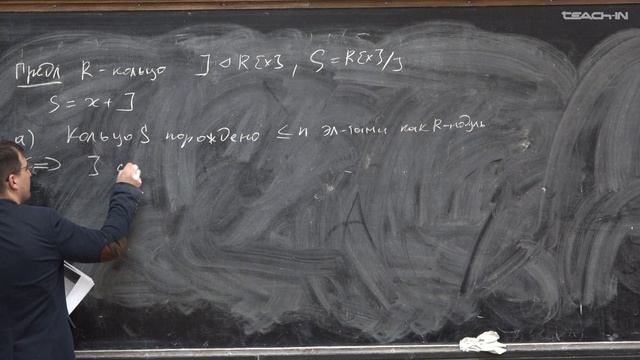 TEACH-IN
Предл R - кольцо J ◁ R[x], S = R[x]/J
s = x + J
а) Кольцо S порождено ≤ n эл-тами как R-модуль
⇐⇒ J с